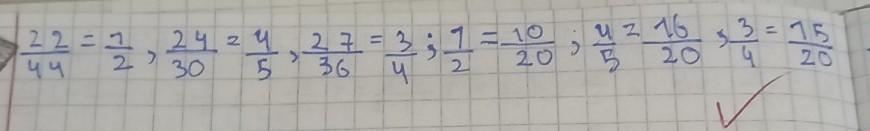 22/44 = 1/2, 24/30 = 4/5, 27/36 = 3/4; 1/2 = 10/20; 4/5 = 16/20, 3/4 = 15/20